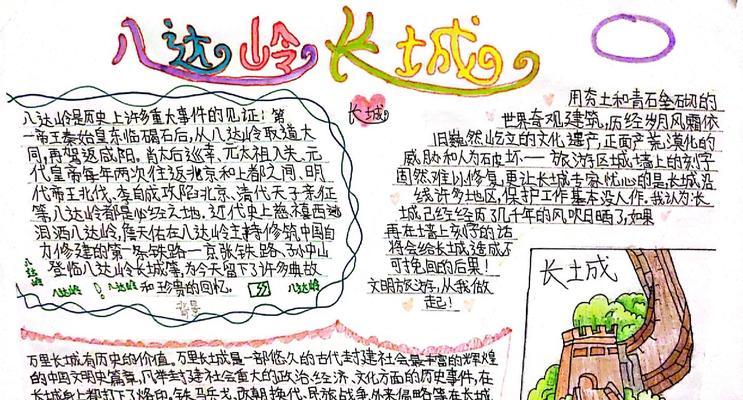 八达岭长城
八达岭是历史上许多重大事件的见证：第
一帝王秦始皇东临碣石后，从八达岭取道大
同，再驾返咸阳。肖太后巡幸、元太祖入关、元
代皇帝每年两次往返北京和上都之间、明
代帝王北伐、李自成攻陷北京、清代天子亲征
等，八达岭都是必经之地。近代史上慈禧西逃
泪洒八达岭、詹天佑在八达岭主持修筑中国自
力修建的第一条铁路一京张铁路、孙中山
登临八达岭长城等，为今天留下了许多典故
和珍贵的回忆。
八达岭
八达岭
八达岭
八达岭
背景
长城
用夯土和青石垒砌的
世界奇观建筑，历经岁月风霜依
旧巍然屹立的文化遗产，正面产荒漠化的
威胁和人为破坏——旅游区城墙上的刻字
固然难以修复，更让长城专家忧心的是，长城沿
线许多地区，保护工作基本没人作。我认为：长
城已经经历了几千年的风吹日晒了，如果
再在墙上刻字的话
将会给长城造成不
可挽回的后果！
文明旅游，从我做
起！
长城
万里长城有历史的价值，万里长城是一部悠久的古代封建社会最丰富的辉煌
的中国文明史篇章，凡举封建社会重大的政治、经济、文化方面的历史事件，在
长城身上都打下了烙印。铁马乐戈、改朝换代、民族战争外来侵略等在长城